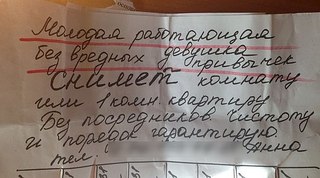 Молодая работающая
без вредных девушка
привычек
снимет комнату
или 1 комн. квартиру
Без посредников. Чистоту
и порядок гарантирую.
тел. Анна